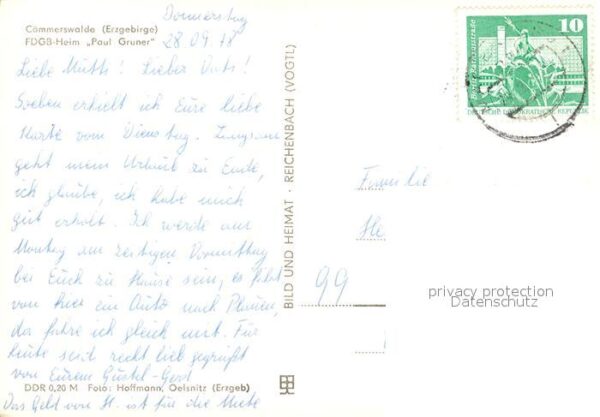 Cämmerswalde (Erzgebirge)
FDGB-Heim „Paul Gruner"
Donnerstag
28 09. 78
Liebe Mutti! Lieber Vati!
Soeben erhielt ich Eure liebe
Karte vom Dienstag. Langsam
geht mein Urlaub zu Ende,
ich glaube, ich habe mich
gut erholt. Ich werde am
Montag am zeitigen Vormittag
bei Euch zu Hause sein, es fährt
von hier ein Auto nach Plauen,
da fahre ich gleich mit. Für
heute seid recht lieb gegrüßt
von Eurem Gustel-Gerd
DDR 0,20 M Foto: Hoffmann, Oelsnitz (Erzgeb)
Das Geld von H. ist für die Miete
BILD UND HEIMAT · REICHENBACH (VOGTL)
10
DEUTSCHE DEMOKRATISCHE REPUBLIK
Familie
He
99
privacy protection
Datenschutz